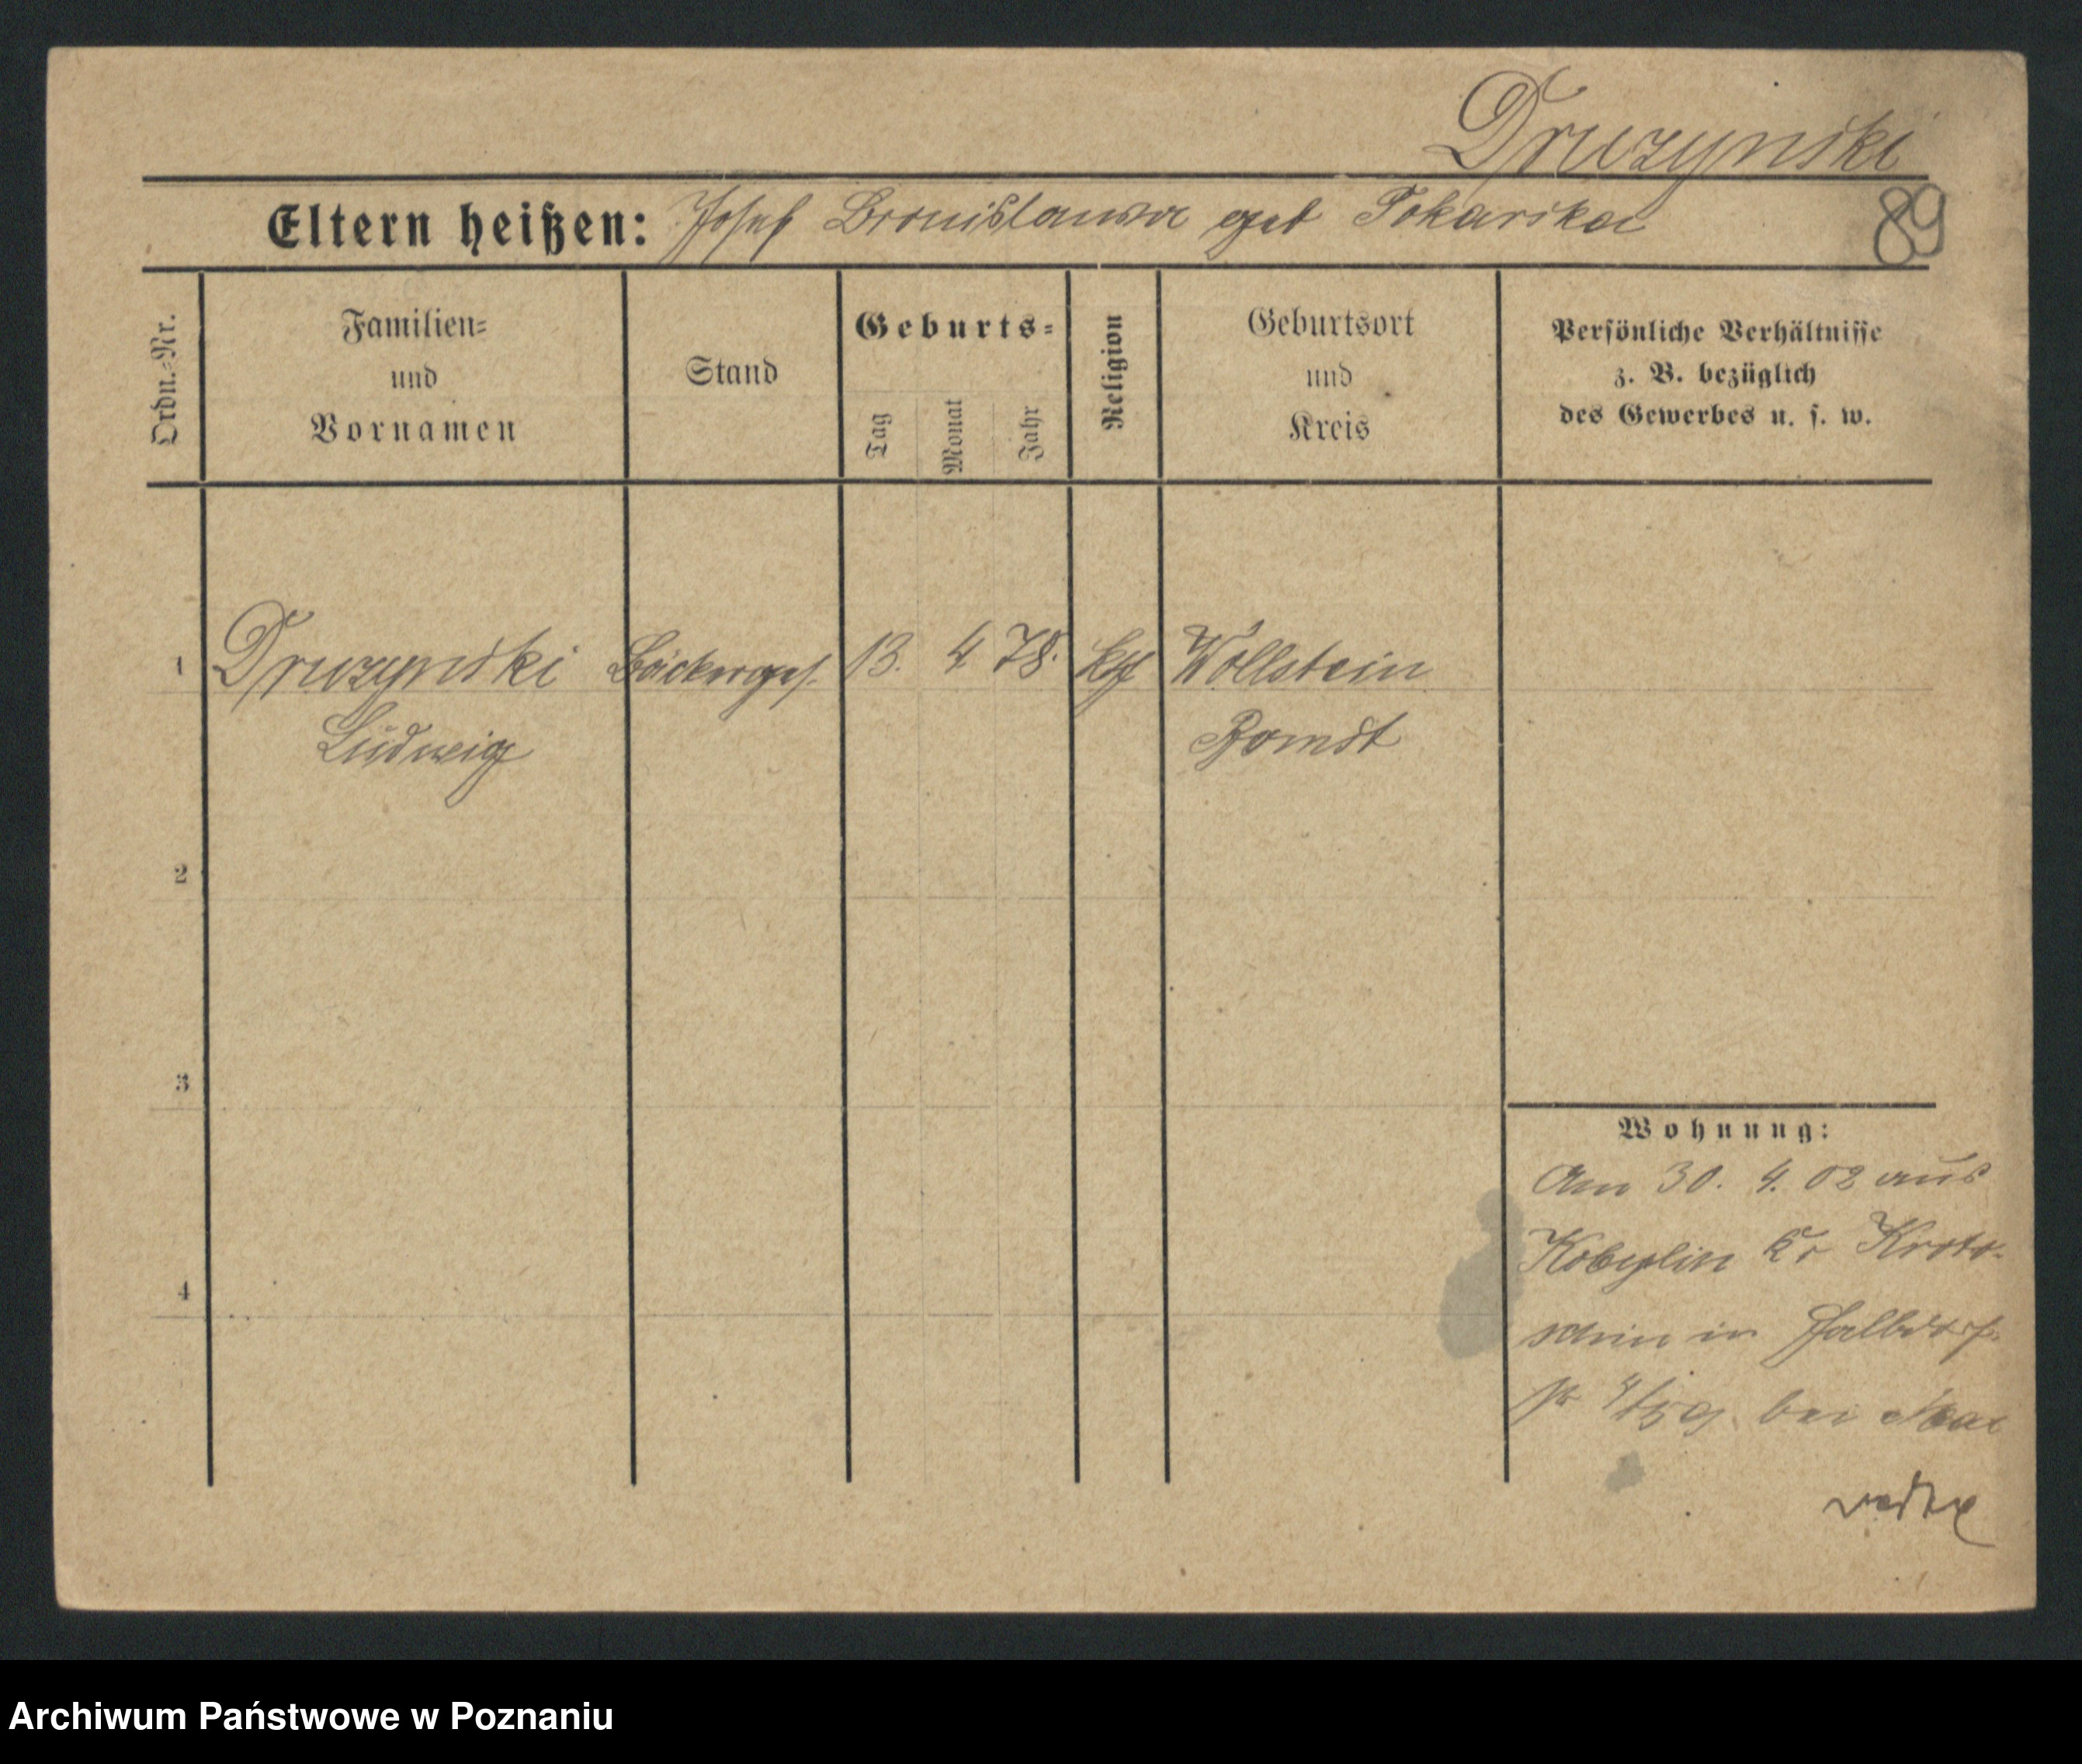 Druzynski
Eltern heißen: Josef Bronislawa geb Tokarska
89
Ordn.-Nr.
Familien- und Vornamen
Stand
Geburts-
Tag
Monat
Jahr
Religion
Geburtsort und Kreis
Persönliche Verhältnisse
z. B. bezüglich
des Gewerbes u. s. w.
1 Druzynski Bäckerges. 13. 4 78. kth Wollstein
Ludwig Bomst
2
3
4
Wohnung:
Am 30. 4. 02 aus
Kobylin Kr Kroto-
schin in Halbdorf-
str bei
Archiwum Państwowe w Poznaniu